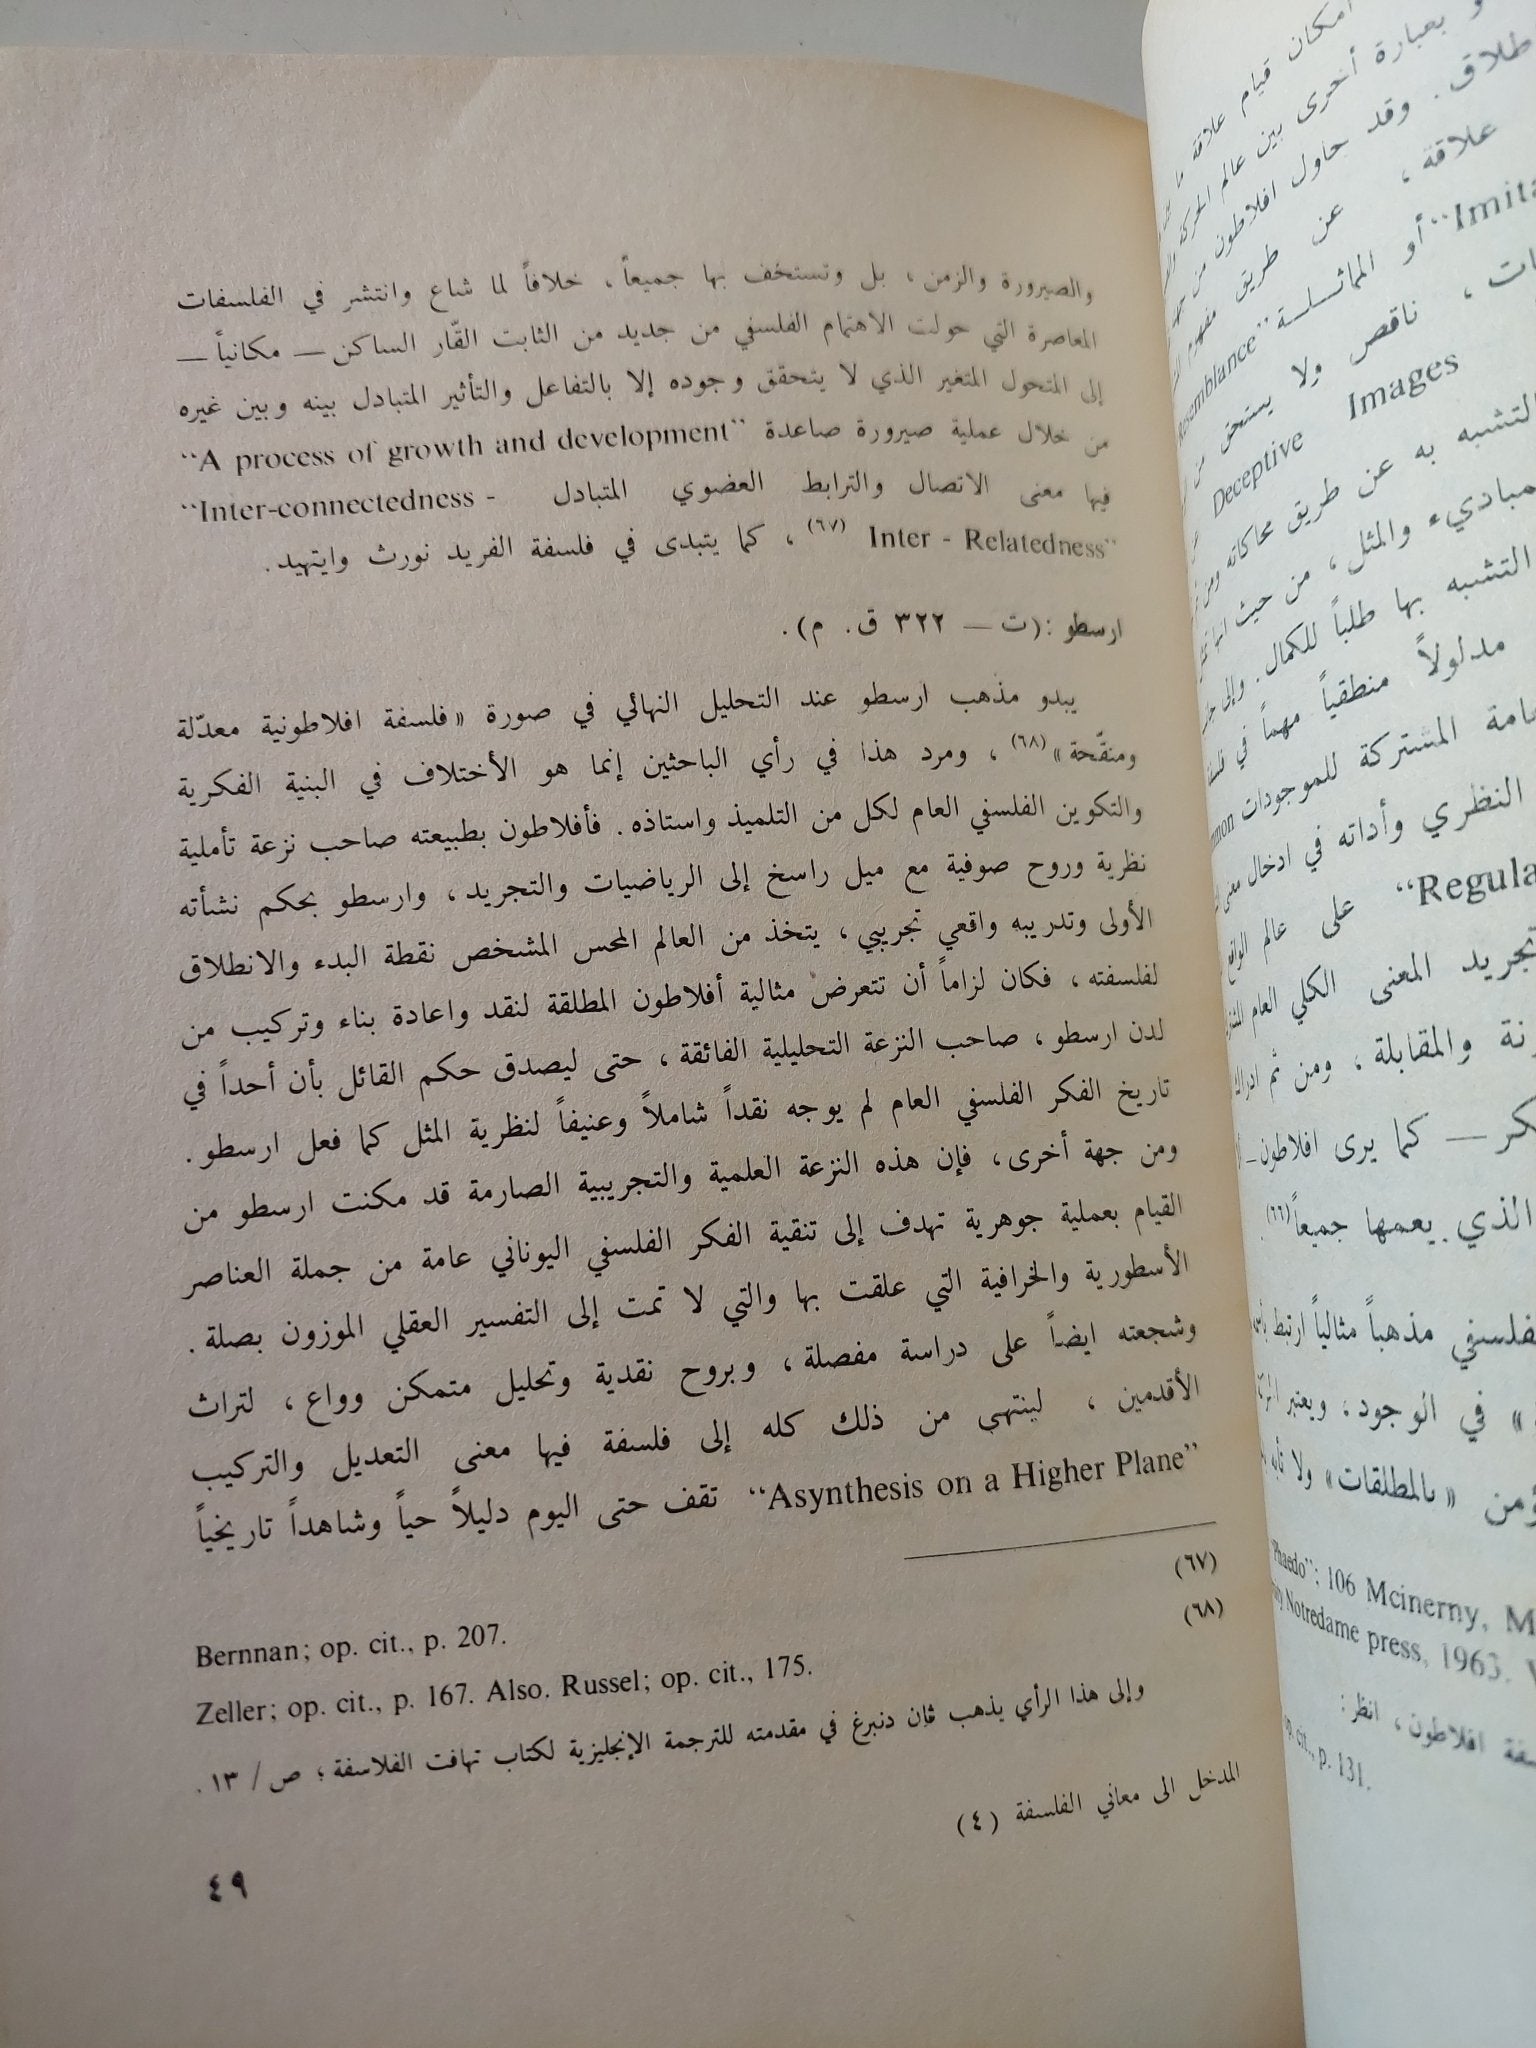 والصيرورة والزمن ، بل وتستخف بها جميعاً ، خلافاً لما شاع وانتشر في الفلسفات
المعاصرة التي حولت الاهتمام الفلسفي من جديد من الثابت القّار الساكن — مكانياً —
إلى المتحول المتغير الذي لا يتحقق وجوده إلا بالتفاعل والتأثير المتبادل بينه وبين غيره
من خلال عملية صيرورة صاعدة "A process of growth and development"
فيها معنى الاتصال والترابط العضوي المتبادل "Inter-connectedness -
Inter - Relatedness" (٦٧) ، كما يتبدى في فلسفة الفريد نورث وايتهيد .
ارسطو : (ت — ٣٢٢ ق. م) .
يبدو مذهب ارسطو عند التحليل النهائي في صورة « فلسفة افلاطونية معدّلة
ومنقّحة » (٦٨) ، ومرد هذا في رأي الباحثين إنما هو الأختلاف في البنية الفكرية
والتكوين الفلسفي العام لكل من التلميذ واستاذه . فأفلاطون بطبيعته صاحب نزعة تأملية
نظرية وروح صوفية مع ميل راسخ إلى الرياضيات والتجريد ، وارسطو بحكم نشأته
الأولى وتدريبه واقعي تجريبي ، يتخذ من العالم المحس المشخص نقطة البدء والانطلاق
لفلسفته ، فكان لزاماً أن تتعرض مثالية أفلاطون المطلقة لنقد واعادة بناء وتركيب من
لدن ارسطو ، صاحب النزعة التحليلية الفائقة ، حتى ليصدق حكم القائل بأن أحداً في
تاريخ الفكر الفلسفي العام لم يوجه نقداً شاملاً وعنيفاً لنظرية المثل كما فعل ارسطو .
ومن جهة أخرى ، فإن هذه النزعة العلمية والتجريبية الصارمة قد مكنت ارسطو من
القيام بعملية جوهرية تهدف إلى تنقية الفكر الفلسفي اليوناني عامة من جملة العناصر
الأسطورية والخرافية التي علقت بها والتي لا تمت إلى التفسير العقلي الموزون بصلة .
وشجعته ايضاً على دراسة مفصلة ، وبروح نقدية وتحليل متمكن وواع ، لتراث
الأقدمين ، لينتهي من ذلك كله إلى فلسفة فيها معنى التعديل والتركيب
"Asynthesis on a Higher Plane" تقف حتى اليوم دليلاً حياً وشاهداً تاريخياً
(٦٧)
(٦٨)
Bernnan; op. cit., p. 207.
Zeller; op. cit., p. 167. Also. Russel; op. cit., 175.
وإلى هذا الرأي يذهب ڤان دنبرغ في مقدمته للترجمة الإنجليزية لكتاب تهافت الفلاسفة ؛ ص / ١٣ .
المدخل الى معاني الفلسفة (٤)
٤٩
امكان قيام علاقة ما
و بعبارة أخرى بين عالم الحركة
وقد حاول افلاطون من
علاقة ، عن طريق مفهوم
أو المماثلة "Resemblance"
ناقص ولا يستحق من
Deceptive Images
التشبه به عن طريق محاكاته
والمثل ، من حيث انها
التشبه بها طلباً للكمال . وإلى
مدلولاً منطقياً مهماً في
المشتركة للموجودات
النظري وأداته في ادخال معنى
على عالم الواقع
تجريد المعنى الكلي العام
والمقابلة ، ومن ثم
— كما يرى افلاطون —
الذي يعمها جميعاً (٦٦) .
مذهباً مثالياً ارتبط
» في الوجود ، ويعتبر
« بالمطلقات » ولا
Phaedo"; 106 Mcinerny,
Notredame press, 1963.
افلاطون ، انظر :
op. cit., p. 131.